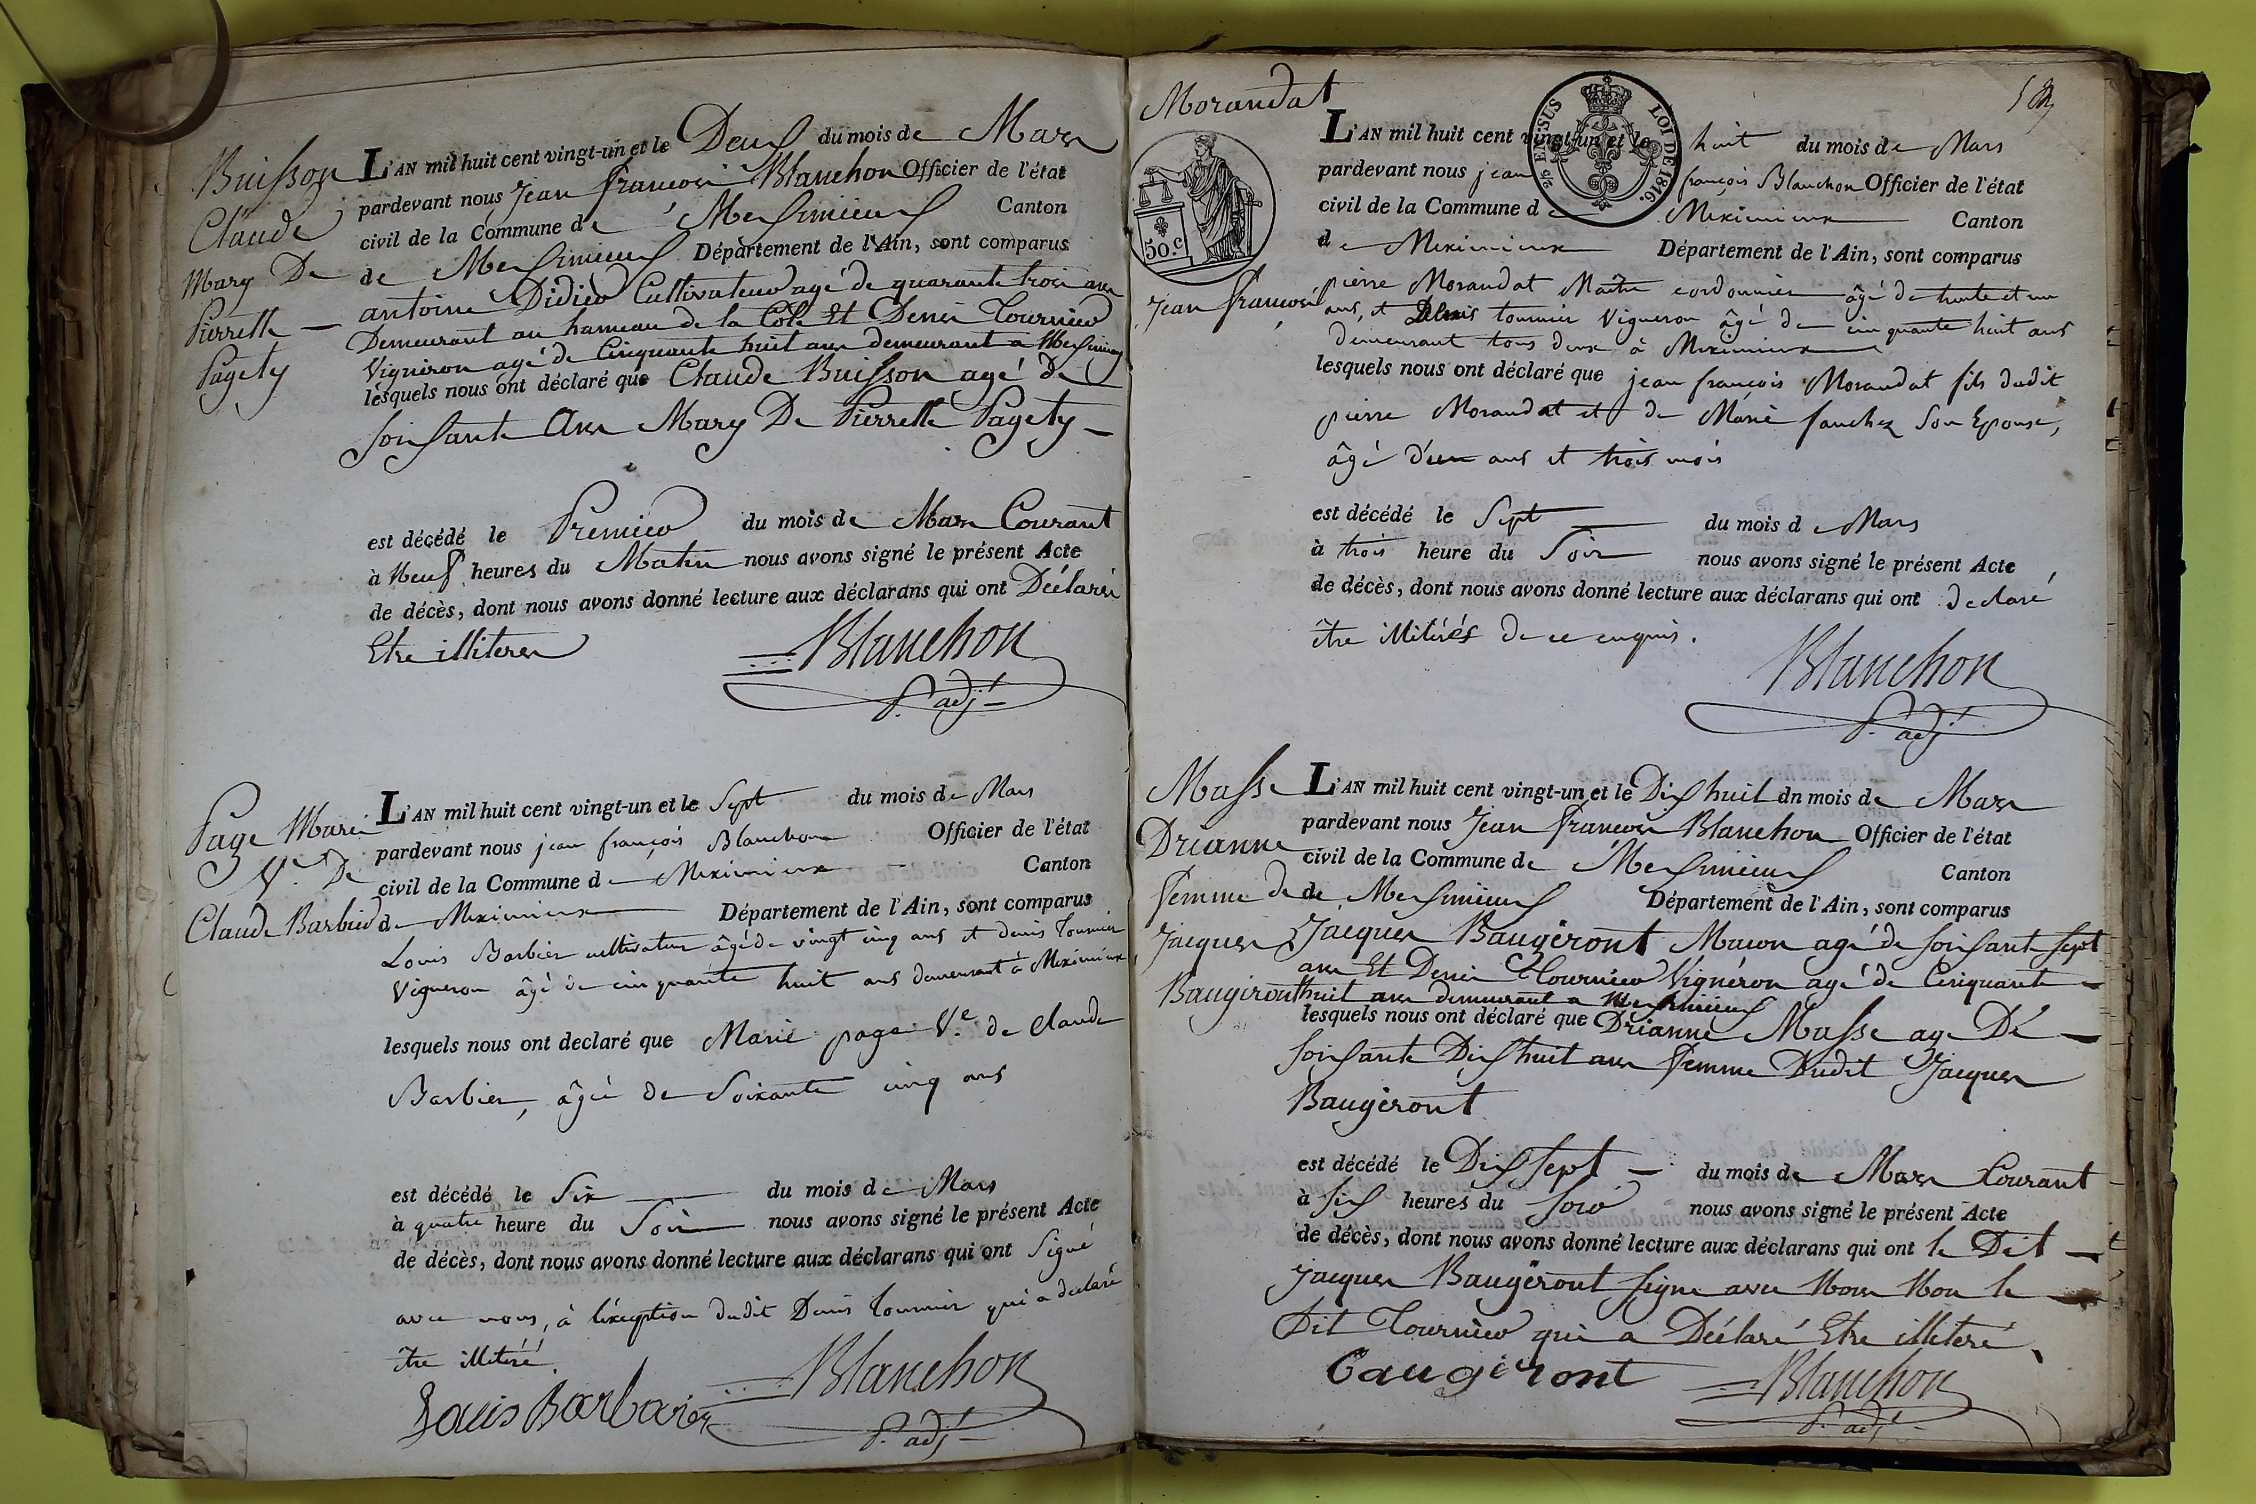 Buisson
Claude
Mary De
Pierrette —
Pagety
L'AN mil huit cent vingt-un et le Deux du mois de Mars
pardevant nous Jean françois Blanchon Officier de l'état
civil de la Commune de Meximieux Canton
de Meximieux Département de l'Ain, sont comparus
antoine Didier Cultivateur agé de quarante trois ans
Demeurant au hameau de la Cote Et Denis Tournier
Vigneron agé de Cinquante huit ans demeurant a Meximieux
lesquels nous ont déclaré que Claude Buisson agé de
soixante ans Mary De Pierrette Pagety —
est décédé le Premier du mois de Mars Courant
à Neuf heures du Matin nous avons signé le présent Acte
de décès, dont nous avons donné lecture aux déclarans qui ont Déclaré
Etre illiteres
Blanchon
P. adj.
Page Marie
Ve. De
Claude Barbier
L'AN mil huit cent vingt-un et le Sept du mois de Mars
pardevant nous jean françois Blanchon Officier de l'état
civil de la Commune de Meximieux Canton
de Meximieux Département de l'Ain, sont comparus
Louis Barbier cultivateur âgé de vingt cinq ans et denis Tournier
Vigneron âgé de cinquante huit ans demeurant à Meximieux
lesquels nous ont declaré que Marie page Ve. de Claude
Barbier, âgée de Soixante cinq ans
est décédé le Six du mois de Mars
à quatre heure du Soir nous avons signé le présent Acte
de décès, dont nous avons donné lecture aux déclarans qui ont Signé
avec nous, à l'éxception dudit Denis Tournier qui a déclaré
être illitéré.
Louis Barbier
Blanchon
P. adj.
Morandat
50.c
Jean françois
ENSUS
LOI DE 1816.
L'AN mil huit cent vingt-un et le huit du mois de Mars
pardevant nous jean françois Blanchon Officier de l'état
civil de la Commune de Meximieux Canton
de Meximieux Département de l'Ain, sont comparus
pierre Morandat Maitre cordonnier âgé de trente et un
ans, et Denis tournier Vigneron âgé de cinquante huit ans
demeurant tous deux à Meximieux
lesquels nous ont déclaré que jean françois Morandat fils dudit
pierre Morandat et de Marie fanchez Son Epouse,
âgé d'un ans et trois mois
est décédé le Sept du mois de Mars
à trois heure du Soir nous avons signé le présent Acte
de décès, dont nous avons donné lecture aux déclarans qui ont declaré
être illitérés de ce enquis.
Blanchon
P. adj.
Masse
Drianne
femme de
Jacques
Baugiront
L'AN mil huit cent vingt-un et le Dix huit dn mois de Mars
pardevant nous Jean francois Blanchon Officier de l'état
civil de la Commune de Meximieux Canton
de Meximieux Département de l'Ain, sont comparus
Jacques Baugeront Macon agé de soixante sept
ans Et Denis Tournier Vigneron agé de Cinquante —
huit ans demeurant a Meximieux
lesquels nous ont déclaré que Drianne Masse age De —
soixante Dix huit ans femme Dudit Jacques
Baugeront
est décédé le Dix sept — du mois de Mars Courant
à six heures du soir nous avons signé le présent Acte
de décès, dont nous avons donné lecture aux déclarans qui ont le Dit —
Jacques Baugeront signe avec Nous Non le —
Dit Tournier qui a Déclaré Etre illiteré
Baugeront
Blanchon
P. adj.